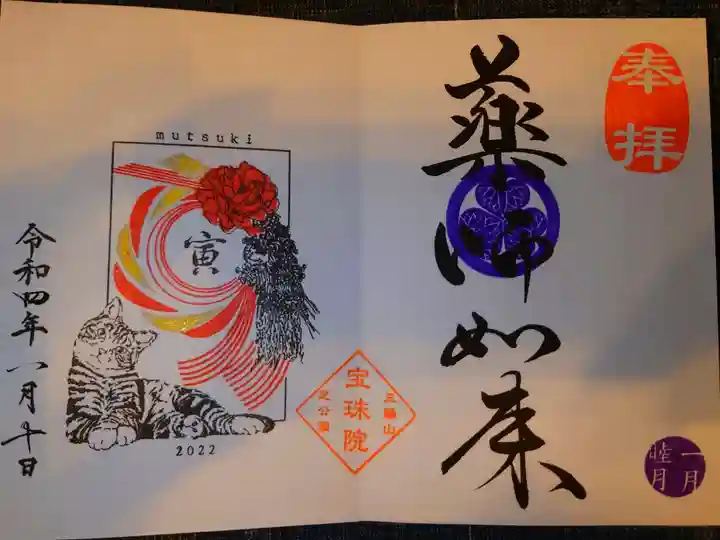 奉拝
薬師如来
一月
睦月
mutsuki
寅
2022
三縁山
宝珠院
芝公園
令和四年一月十日